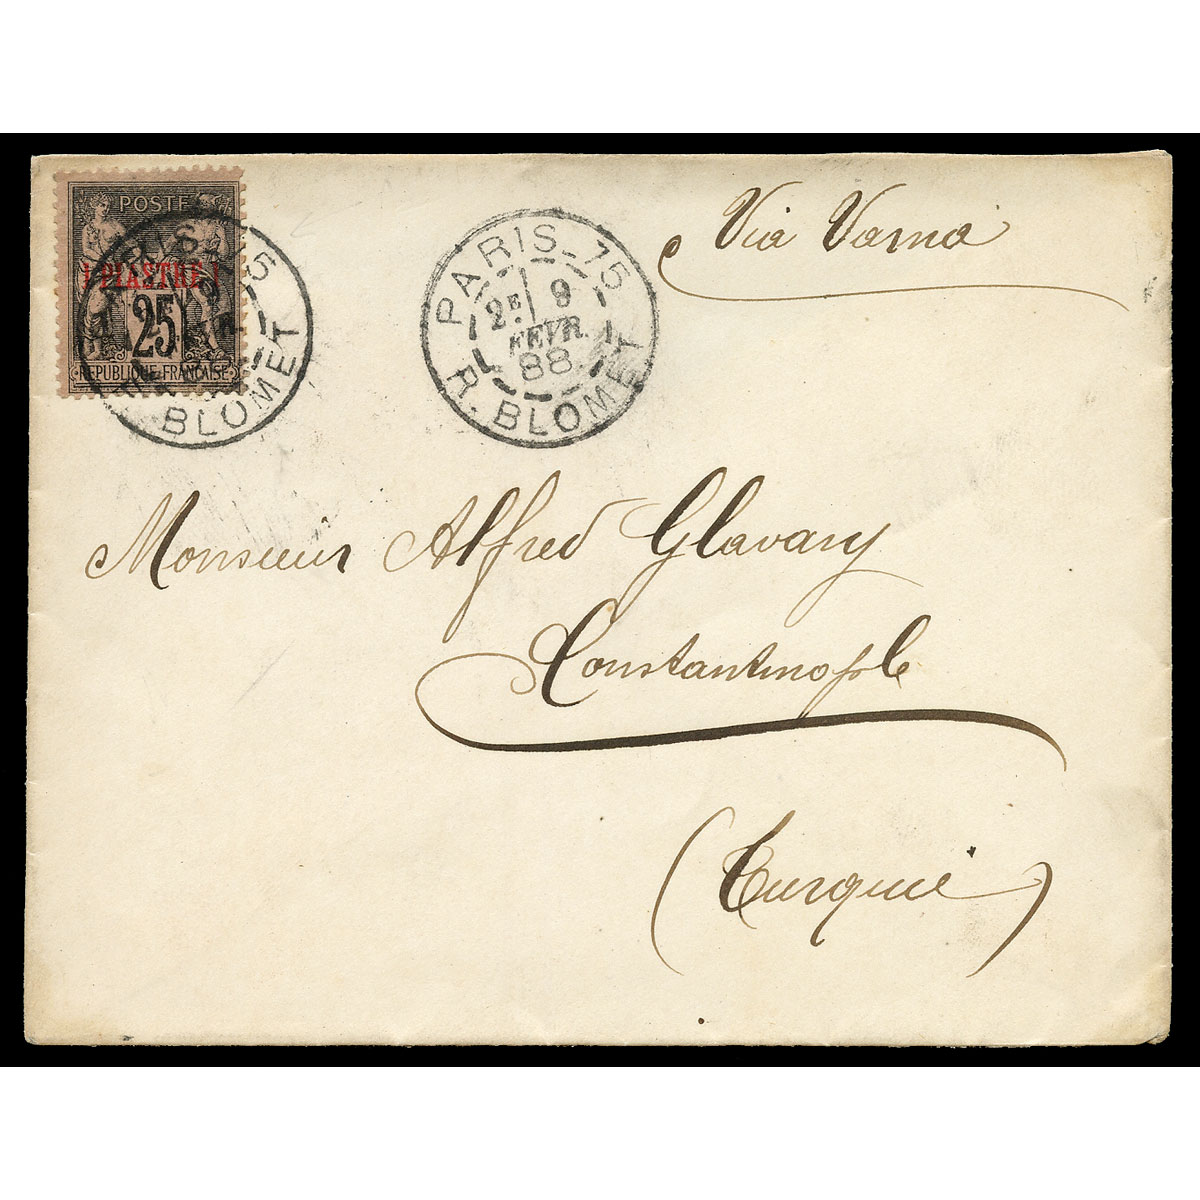 POSTE
1 PIASTRE 1
25
REPUBLIQUE FRANÇAISE
PARIS 15
BLOMET
PARIS-15
2E 9
FEVR.
88
R. BLOMET
Via Varna
Monsieur Alfred Glavary
Constantinople
(Turquie)